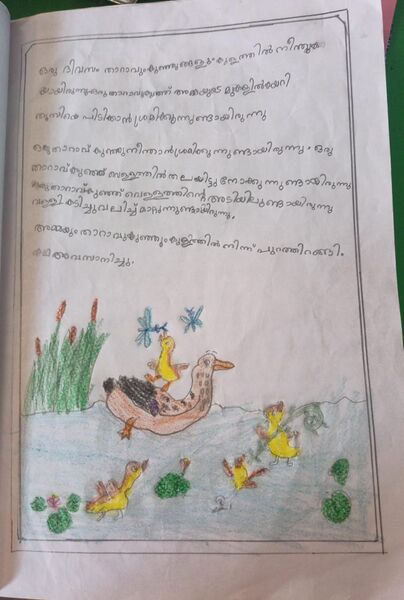 ഒരു ദിവസം താറാവും കുഞ്ഞുങ്ങളും കുളത്തിൽ നീന്തുക
യായിരുന്നു ഒരു താറാവുകുഞ്ഞ് അമ്മയുടെ മുകളിൽ കയറി
തുമ്പിയെ പിടിക്കാൻ ശ്രമിക്കുന്നുണ്ടായിരുന്നു
ഒരു താറാവ് കുഞ്ഞു നീന്താൻ ശ്രമിക്കുന്നുണ്ടായിരുന്നു. ഒരു
താറാവ് കുഞ്ഞ് വെള്ളത്തിൽ തലയിട്ടു നോക്കുന്നുണ്ടായിരുന്നു
ഒരു താറാവ് കുഞ്ഞ് വെള്ളത്തിന്റെ അടിയിലുണ്ടായിരുന്ന
വള്ളി കടിച്ചു വലിച്ച് മാറ്റുന്നുണ്ടായിരുന്നു.
അമ്മയും താറാവുകുഞ്ഞും കുളത്തിൽ നിന്ന് പുറത്തിറങ്ങി.
കഥ അവസാനിച്ചു.